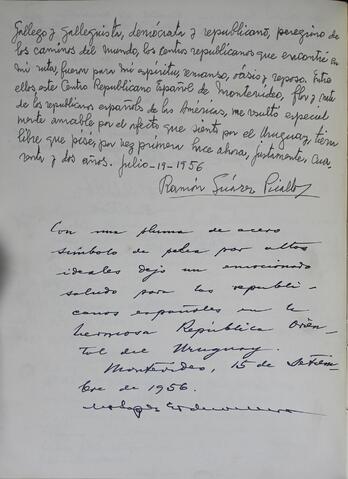 Gallego y galleguista, demócrata y republicano, peregrino de
los caminos del mundo, los centros republicanos que encontré en
mi ruta, fueron para mi espíritu, remanso, oásis y reposo. Entre
ellos este Centro Republicano Español de Montevideo, flor y
de los republicanos españoles de las Américas, me resultó especial
mente amable por el afecto que siento por el Uruguay, tierra
libre que pisé, por vez primera hace ahora, justamente, cua
renta y dos años. Julio-19-1956
Ramón Suárez Picallo
Con una pluma de acero
símbolo de pelea por altos
ideales dejo un emocionado
saludo para los republi-
canos españoles en la
hermosa República Orien-
tal del Uruguay.
Montevideo, 15 de Setiem-
bre de 1956.